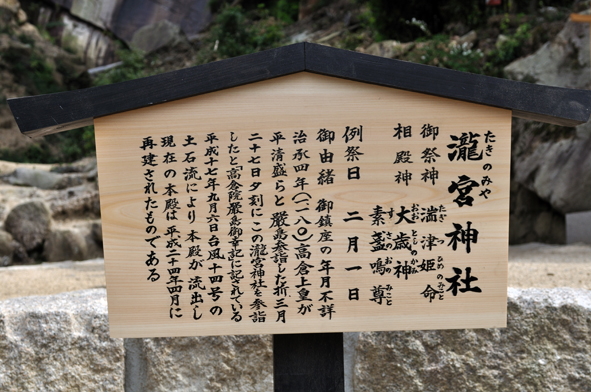 瀧宮神社
たきのみや
御祭神 湍津姫命
たぎつひめのみこと
相殿神 大歳神
おおとしのかみ
素盞嗚尊
すさのおのみこと
例祭日 二月一日
御由緒 御鎮座の年月不詳
治承四年(一一八〇)高倉上皇が
平清盛らと厳島参詣した折三月
二十七日夕刻にこの瀧宮神社を参詣
したと高倉院厳島御幸記に記されている
平成十七年九月六日台風十四号の
土石流により本殿が流出し
現在の本殿は平成二十四年四月に
再建されたものである